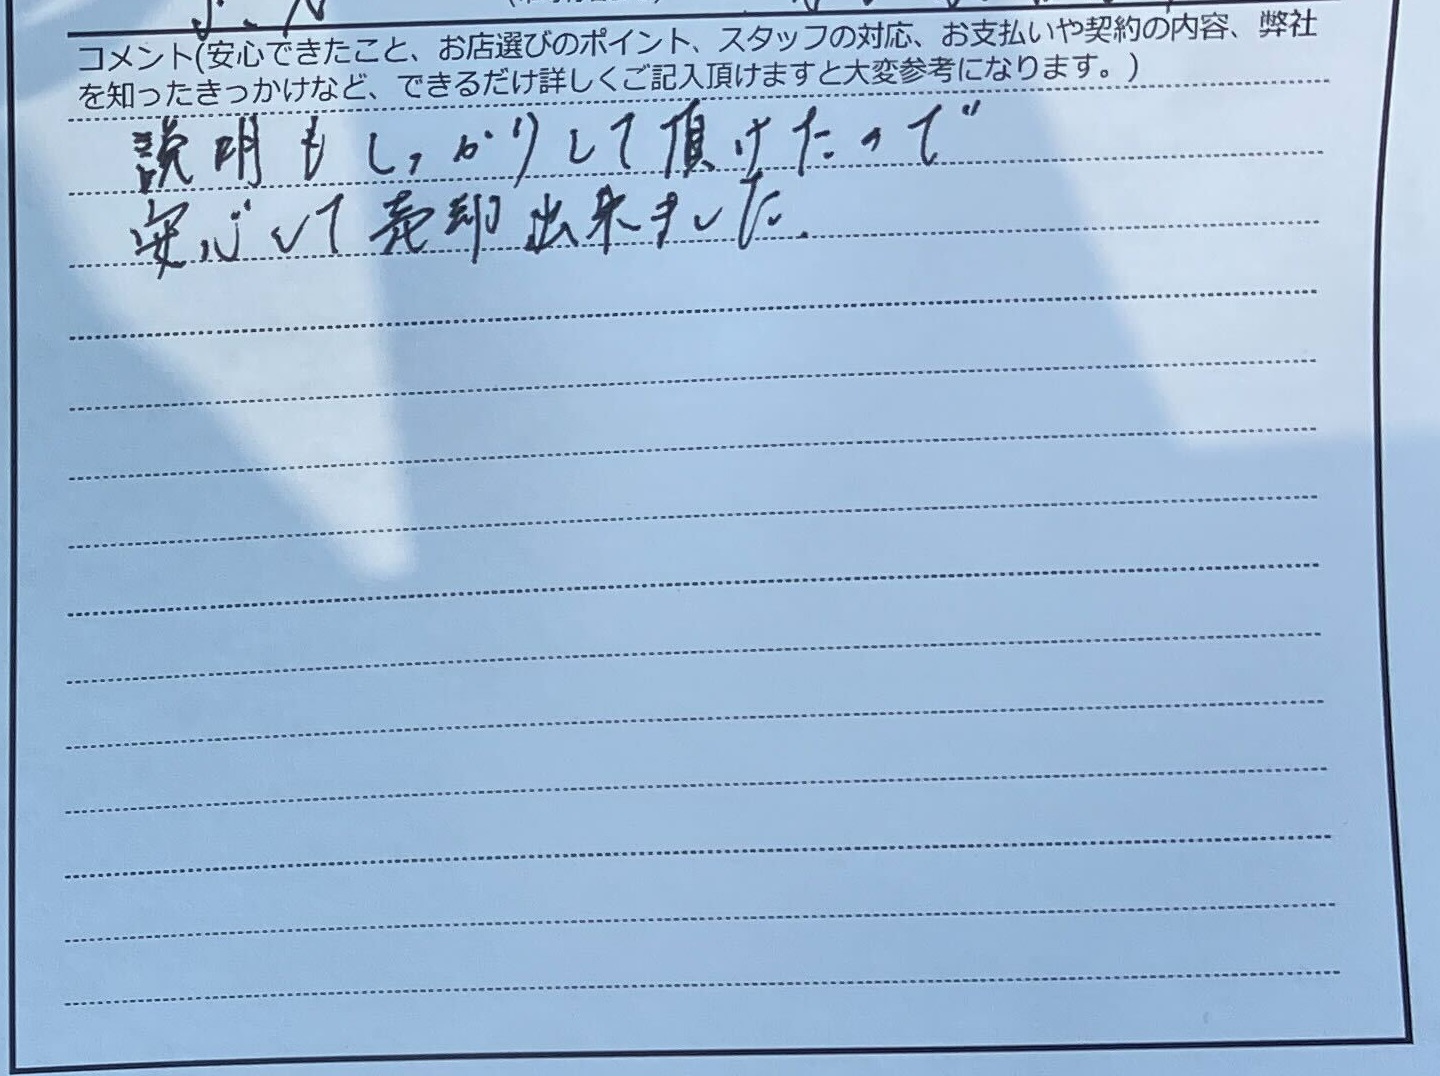 コメント(安心できたこと、お店選びのポイント、スタッフの対応、お支払いや契約の内容、弊社
を知ったきっかけなど、できるだけ詳しくご記入頂けますと大変参考になります。)
説明もしっかりして頂けたので
安心して売却出来ました.